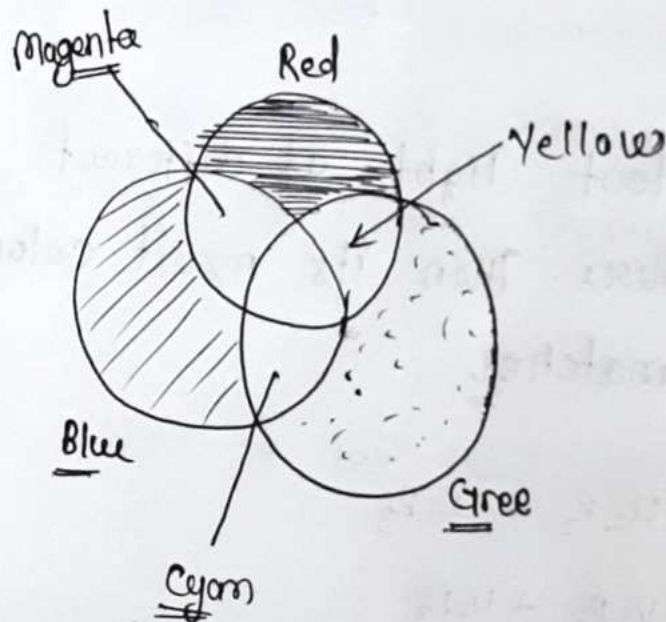 Magenta
Red
Yellow
Blue
Gree
Cyan